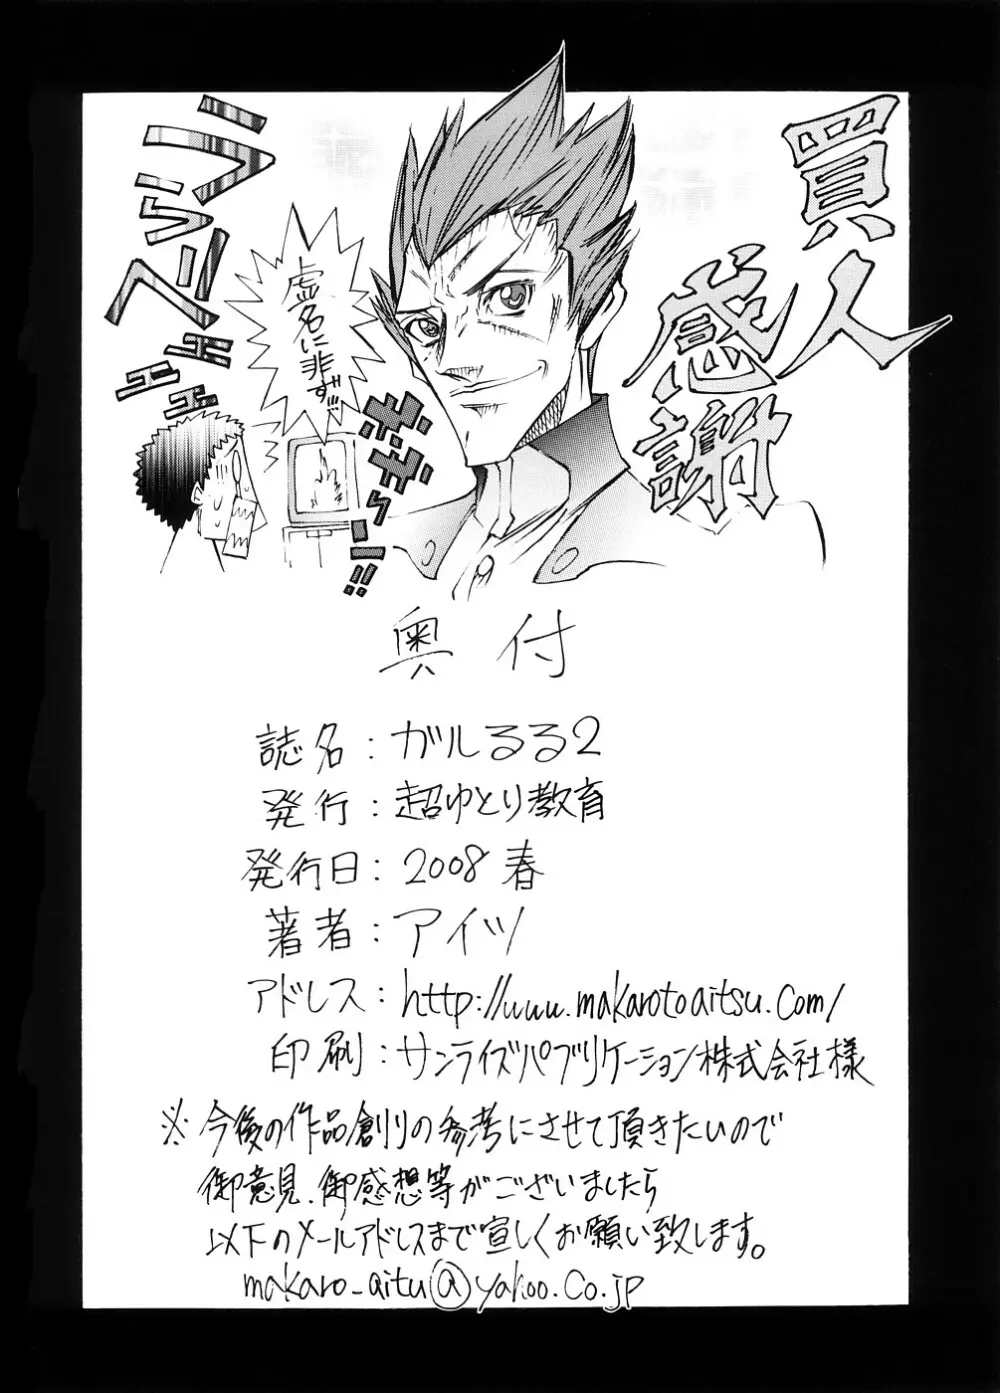 買人
感謝
虚名に非ず…
ララァらベ
ェェェェ
ギンギラーン!!
奥付
誌名：ガルるる2
発行：超ゆとり教育
発行日：2008 春
著者：アイツ
アドレス：http://www.makarotoaitsu.com/
印刷：サンライズパブリケーション株式会社様
※今後の作品創りの参考にさせて頂きたいので
御意見、御感想等がございましたら
以下のメールアドレスまで宜しくお願い致します。
makaro_aitu@yahoo.co.jp